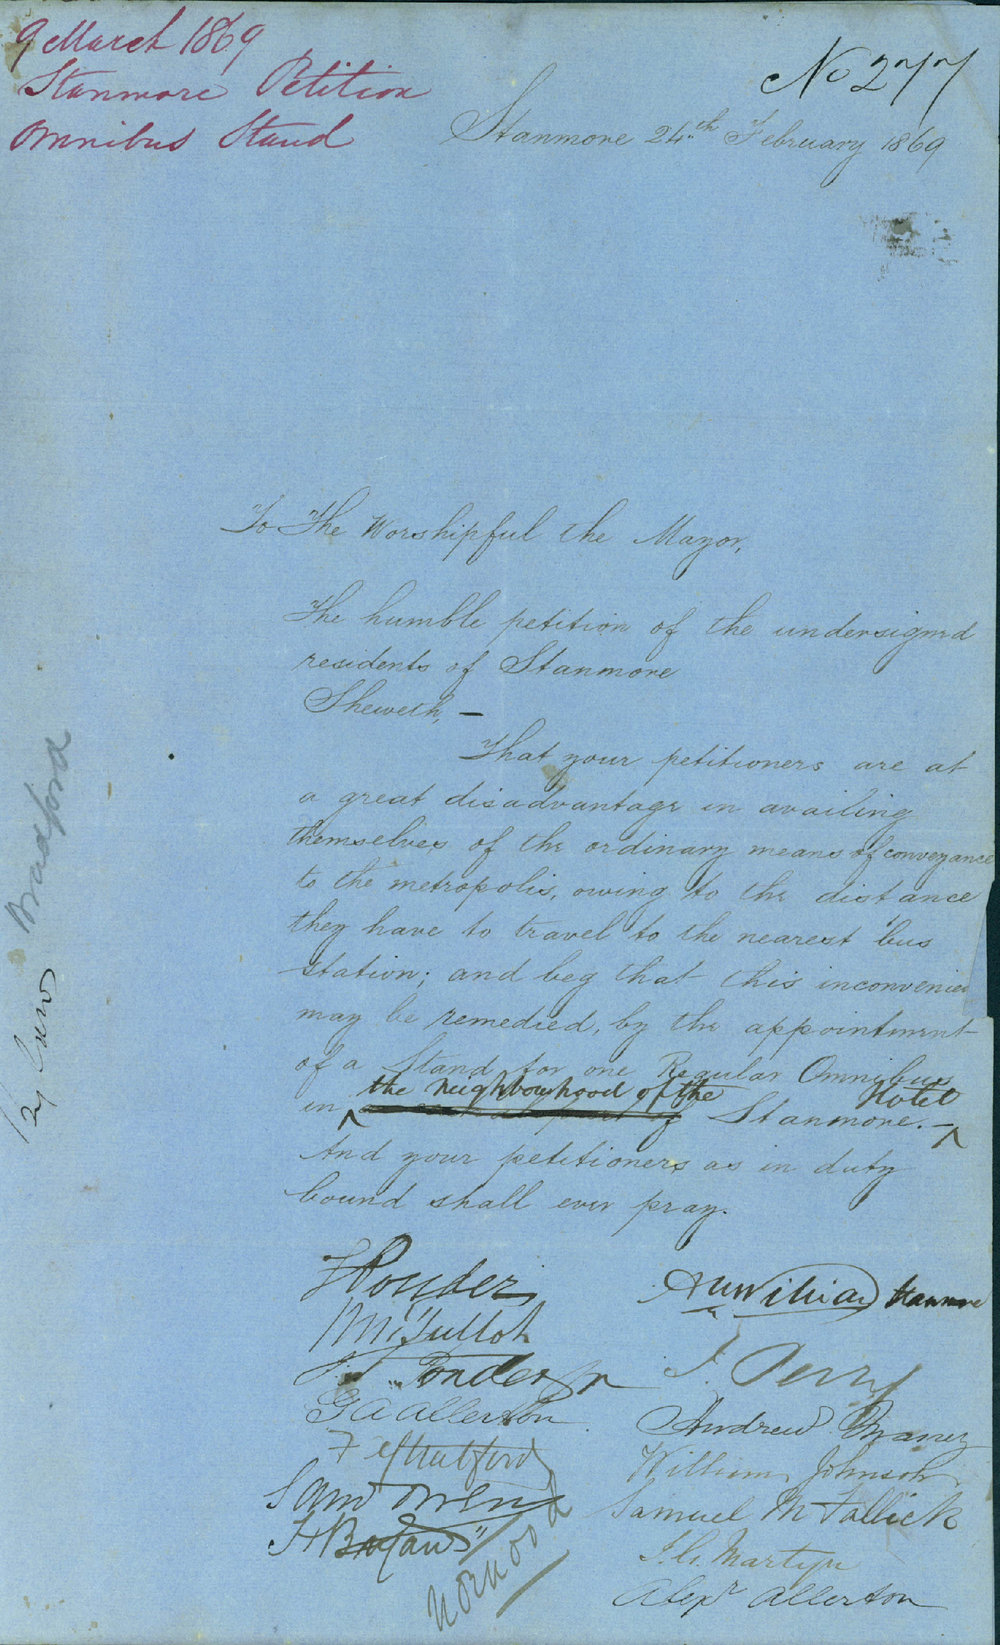 9 March 1869
Stanmore Petition
Omnibus Stand
No 277
Stanmore 24th February 1869
To The Worshipful the Mayor,
The humble petition of the undersigned
residents of Stanmore
Sheweth, —
That your petitioners are at
a great disadvantage in availing
themselves of the ordinary means of conveyance
to the metropolis, owing to the distance
they have to travel to the nearest 'bus
station; and beg that this inconvenien
may be remedied, by the appointment
of a Stand for one Regular Omnibus
in the neighbourhood of the Stanmore Hotel. —
And your petitioners as in duty
bound shall ever pray.
Ponder
Tulloh
Ponder Jr
G A Allerton
F
Sam Owen
H
Norwood
William Stanmore
J. Perry
Andrew
William Johnson
Samuel McFallick
J. G. Martyn
Alexr Allerton
Bradford